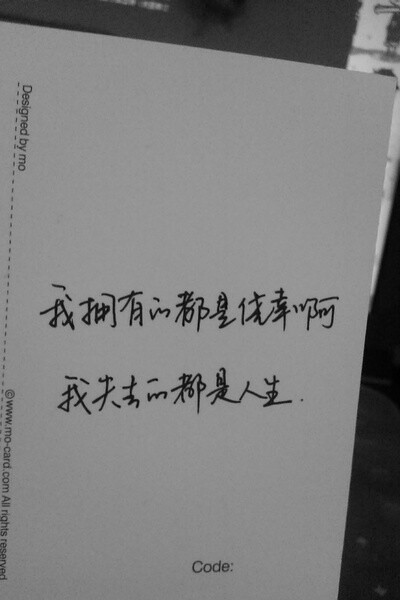 Designed by mo
我拥有的都是侥幸啊
我失去的都是人生.
©www.mo-card.com All rights reserved
Code: